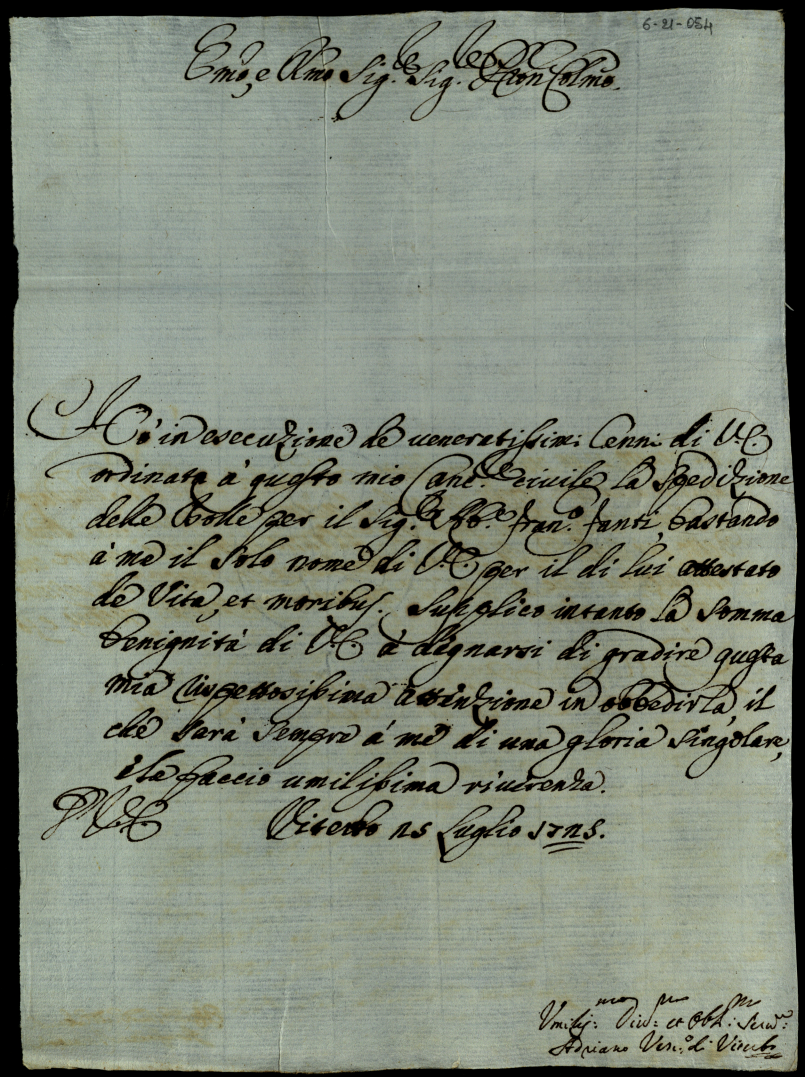 6-21-054
Emo, e Rmo Sig.re Sig.re Pron Colmo.
Hò in esecuzione de veneratissim: Cenni di V.E.
ordinata à questo mio Canc.re civile la Spedizione
delle Bolle per il Sig.re Ab.e Fran.o Fanti, bastando
à me il solo nome di V.E. per il di lui attestato
de Vita, et moribus. Supplico intanto la somma
benignità di V.E. à degnarsi di gradire questa
mia rispettosissima attenzione in obbedirla, il
che sarà sempre à me di una gloria singolare,
e le faccio umilissima riverenza.
D. V. E. Viterbo 25 Luglio 1725.
Umiliss:mo Div:mo et Obb:mo Serv:re
Adriano Vesc.o di Viterbo